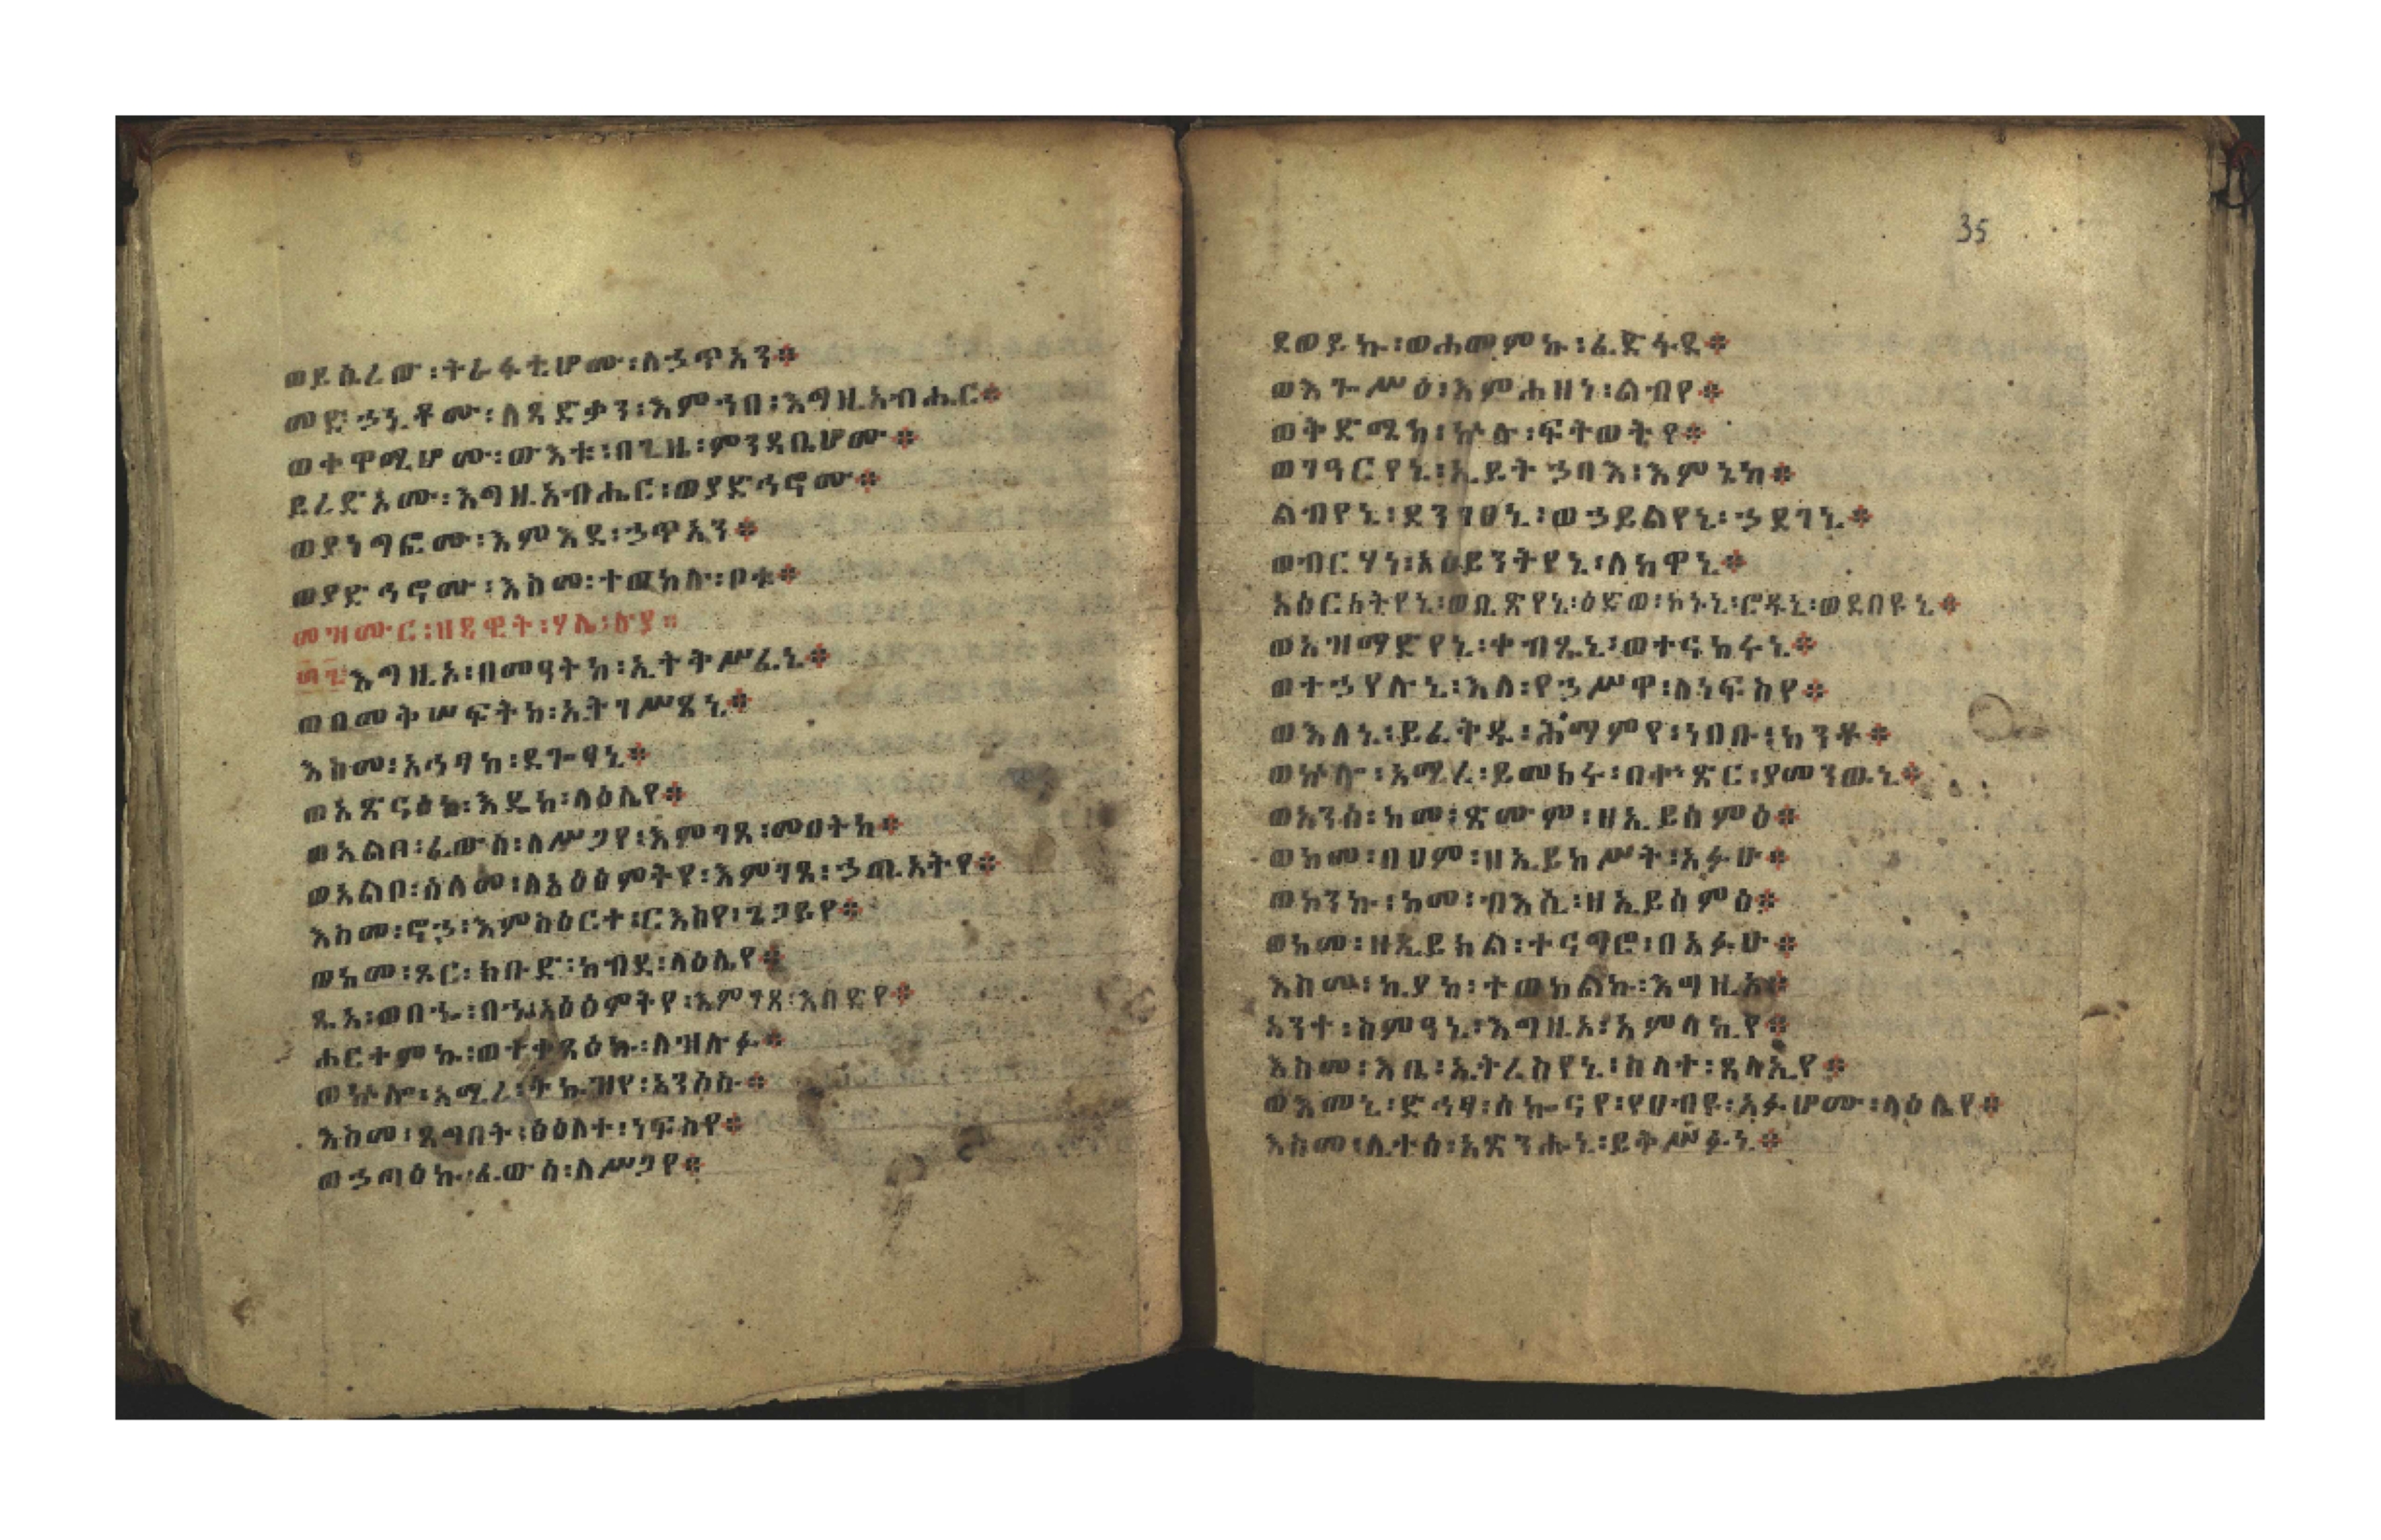 ወይሴረው፡ትራፋቲሆሙ፡ለኃጥአን፨
መድኃኒቶሙ፡ለጻድቃን፡እምኀበ፡እግዚአብሔር፨
ወተዋሚሆሙ፡ውእቱ፡በጊዜ፡ምንዳቤሆሙ፨
ይረድኦሙ፡እግዚአብሔር፡ወያድኅኖሙ፨
ወያነግፎሙ፡እምእደ፡ኃጥአን፨
ወያድኅኖሙ፡እስመ፡ተወከሉ፡ቦቱ፨
መዝሙር፡ዘዳዊት፡ሃሌ፡ሉያ፨
፴፯እግዚኦ፡በመዓትከ፡ኢትትሥፈኒ፨
ወበመቅሠፍትከ፡ኢትገሥጸኒ፨
እስመ፡አሕፃከ፡ደጐፃኒ፨
ወአጽናዕከ፡እዴከ፡ላዕሌየ፨
ወአልቦ፡ፈውስ፡ለሥጋየ፡እምገጸ፡መዐትከ፨
ወአልቦ፡ሰላመ፡ለአዕፅምትየ፡እምገጸ፡ኃጢአትየ፨
እስመ፡ኖኃ፡እምስዕርተ፡ርእስየ፡ጌጋይየ፨
ወከመ፡ጾር፡ከቡድ፡ከብደ፡ላዕሌየ፨
ጼአ፡ወበኁ፡በኁአዕፅምትየ፡እምገጸ፡እበድየ፨
ሐርተምኩ፡ወተቀጻዕኩ፡ለዝሉፉ፨
ወኵሎ፡አሚረ፡ትኩዝየ፡አንሶሱ፨
እስመ፡ጸግበት፡ፅዕለተ፡ነፍስየ፨
ወኃጣዕኩ፡ፈውሰ፡ለሥጋየ፨
ደወይኩ፡ወሐመምኩ፡ፈድፋደ፨
ወእጐሥዕ፡እምሐዘነ፡ልብየ፨
ወቅድሜከ፡ኵሉ፡ፍትወትየ፨
ወገዓርየኒ፡ኢይትኃባእ፡እምኔከ፨
ልብየኒ፡ደንገፀኒ፡ወኃይልየኒ፡ኃደገኒ፨
ወብርሃነ፡አዕይንትየኒ፡ለከዋኒ፨
አዕርክትየኒ፡ወቢጽየኒ፡ዕድወ፡ከኑኒ፡ሮዱኒ፡ወደበዩኒ፨
ወአዝማድየኒ፡ቀብጹኒ፡ወተናከሩኒ፨
ወተኃየሉኒ፡እለ፡የኃሥዋ፡ለነፍስየ፨
ወእለኒ፡ይፈትዱ፡ሕማምየ፡ነበቡ፡ከንቶ፨
ወኵሎ፡አሚረ፡ይመክሩ፡በቍጽር፡ያመንውኒ፨
ወአንሰ፡ከመ፡ጽሙም፡ዘኢይሰምዕ፨
ወከመ፡በሀም፡ዘኢይከሥት፡አፉሁ፨
ወኮንኩ፡ከመ፡ብእሲ፡ዘኢይሰምዕ፨
ወከመ፡ዘኢይክል፡ተናግሮ፡በአፉሁ፨
እስመ፡ኪያከ፡ተወከልኩ፡እግዚኦ፨
አንተ፡ስምዓኒ፡እግዚኦ፡አምላኪየ፨
እስመ፡እቤ፡ኢትረስየኒ፡ስላተ፡ጸላኢየ፨
ወእመኒ፡ድኅፃ፡ሰኰናየ፡የዐብዩ፡አፉሆሙ፡ላዕሌየ፨
እስመ፡ሊተሰ፡አጽንሑኒ፡ይቅሥፉኒ፨
35